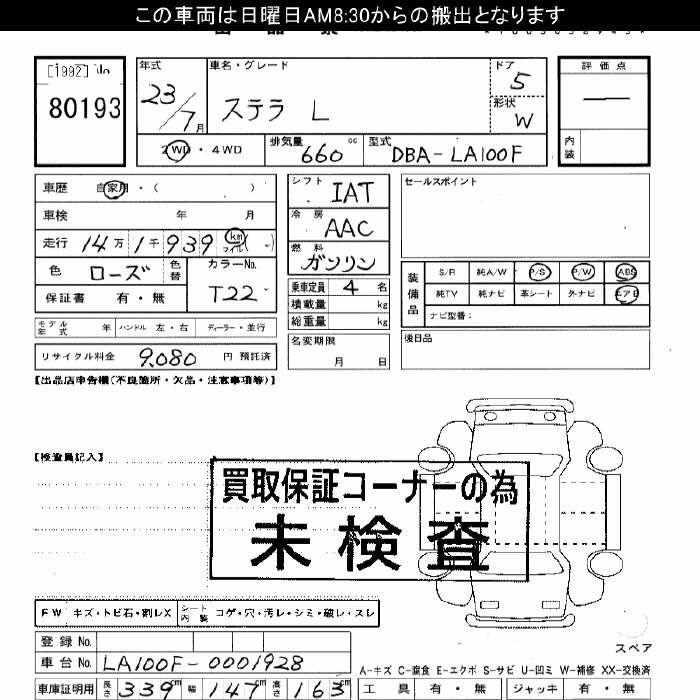 この車両は日曜日AM8:30からの搬出となります
[1992]
80193
年式
23/7月
車名・グレード
ステラ L
ドア
5
形状
W
評価点
内装
2WD・4WD
排気量
660 cc
型式
DBA-LA100F
車歴 自家用・( )
車検 年 月
走行 14万1千939 km マイル( )
色 ローズ 色替
カラーNo.
T22
保証書 有・無
モデル年式 年 ハンドル 左・右 ディーラー・並行
リサイクル料金 9,080 円 預託済
シフト
IAT
冷房
AAC
燃料
ガソリン
乗車定員 4 名
積載量 kg
総重量 kg
名変期限
月 日
セールスポイント
装備品
S/R 純A/W P/S P/W ABS
純TV 純ナビ 革シート 外ナビ エアB
ナビ型番:
後日品
【出品店申告欄(不良箇所・欠品・注意事項等)】
【検査員記入】
買取保証コーナーの為
未検査
FW キズ・トビ石・割レX
シート内装 コゲ・穴・汚レ・シミ・破レ・スレ
登録 No.
車台 No. LA100F-0001928
車庫証明用 長さ 339 cm 幅 147 cm 高さ 163 cm
スペア
A-キズ C-腐食 E-エクボ S-サビ U-凹ミ W-補修 XX-交換済
工具 有・無 ジャッキ 有・無